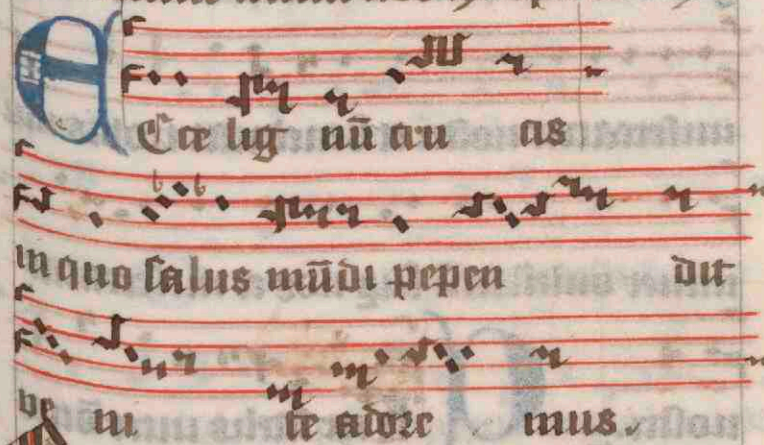 Ecce lignū crucis
in quo salus mūdi pependit
venite adoremus.